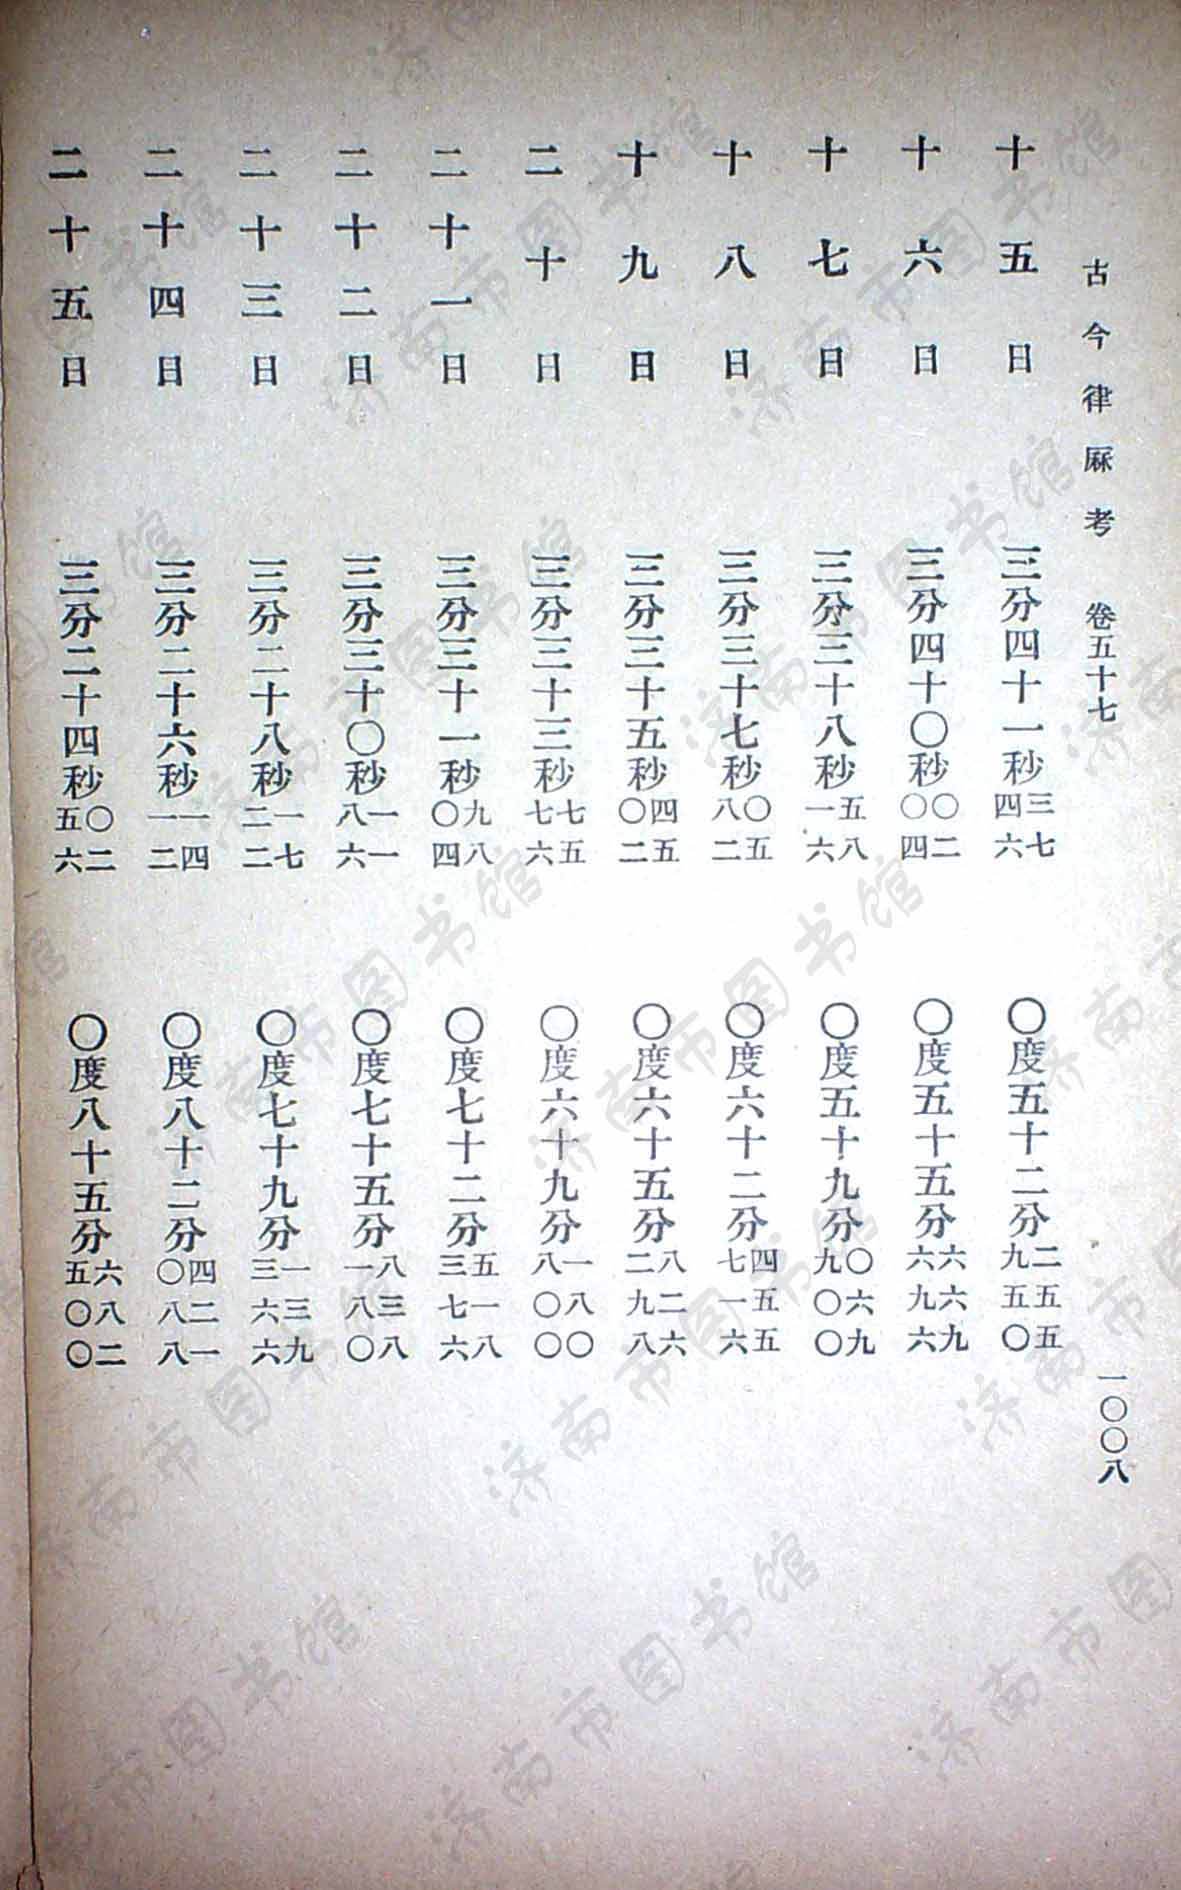 古今律厤考 卷五十七 一〇〇八
十五日 三分四十一秒三七四六 〇度五十二分二五五九五〇
十六日 三分四十〇秒〇二〇四 〇度五十五分六六九六九六
十七日 三分三十八秒五八一六 〇度五十九分〇六九九〇〇
十八日 三分三十七秒〇五八二 〇度六十二分四五五七一六
十九日 三分三十五秒四五〇二 〇度六十五分八二六二九八
二十日 三分三十三秒七五七六 〇度六十九分一八〇八〇〇
二十一日 三分三十一秒九八〇四 〇度七十二分五一八三七六
二十二日 三分三十〇秒一一八六 〇度七十五分八三八一八〇
二十三日 三分二十八秒一七二二 〇度七十九分一三九三六六
二十四日 三分二十六秒一四一二 〇度八十二分四二一〇八八
二十五日 三分二十四秒〇二五六 〇度八十五分六八二五〇〇
济南市图书馆